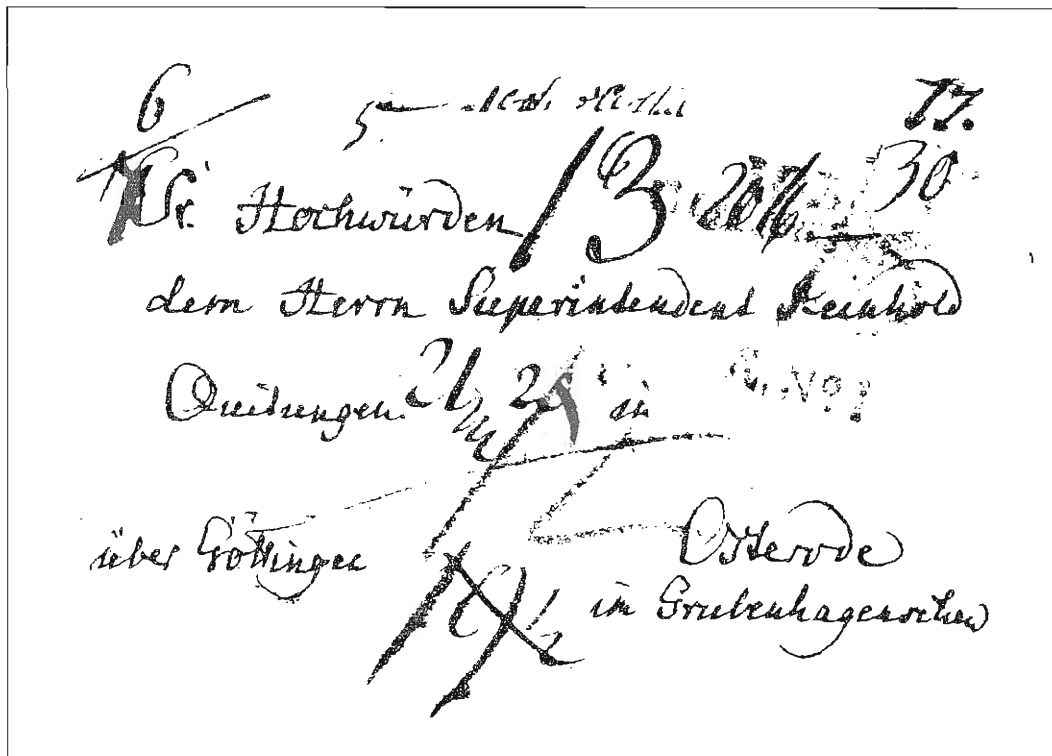 6 5 17.
Sr. Hochwürden 13 30
dem Herrn Superintendent Reinhold
Quitungen. in No 1
über Göttingen Osterode
19½ im Grubenhagenschen